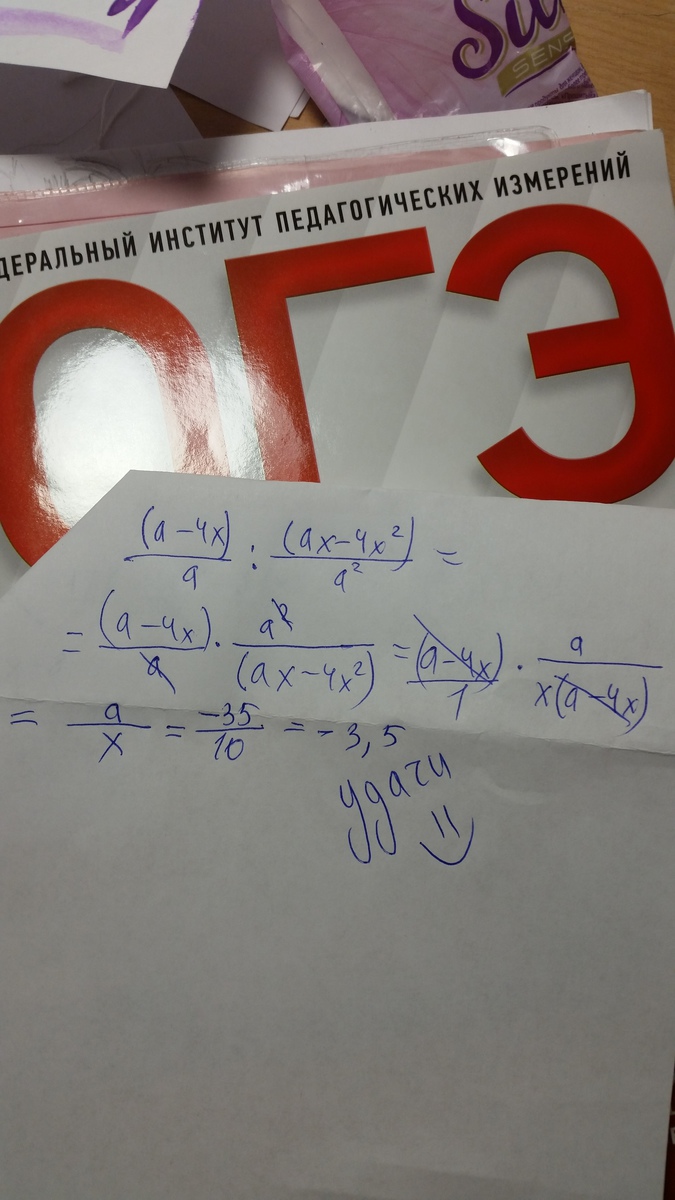 SENS
ДЕРАЛЬНЫЙ ИНСТИТУТ ПЕДАГОГИЧЕСКИХ ИЗМЕРЕНИЙ
ОГЭ
(a-4x)/a : (ax-4x²)/a² =
= (a-4x)/a · a²/(ax-4x²) = (a-4x)/1 · a/x(a-4x)
= a/x = -35/10 = -3,5
удачи